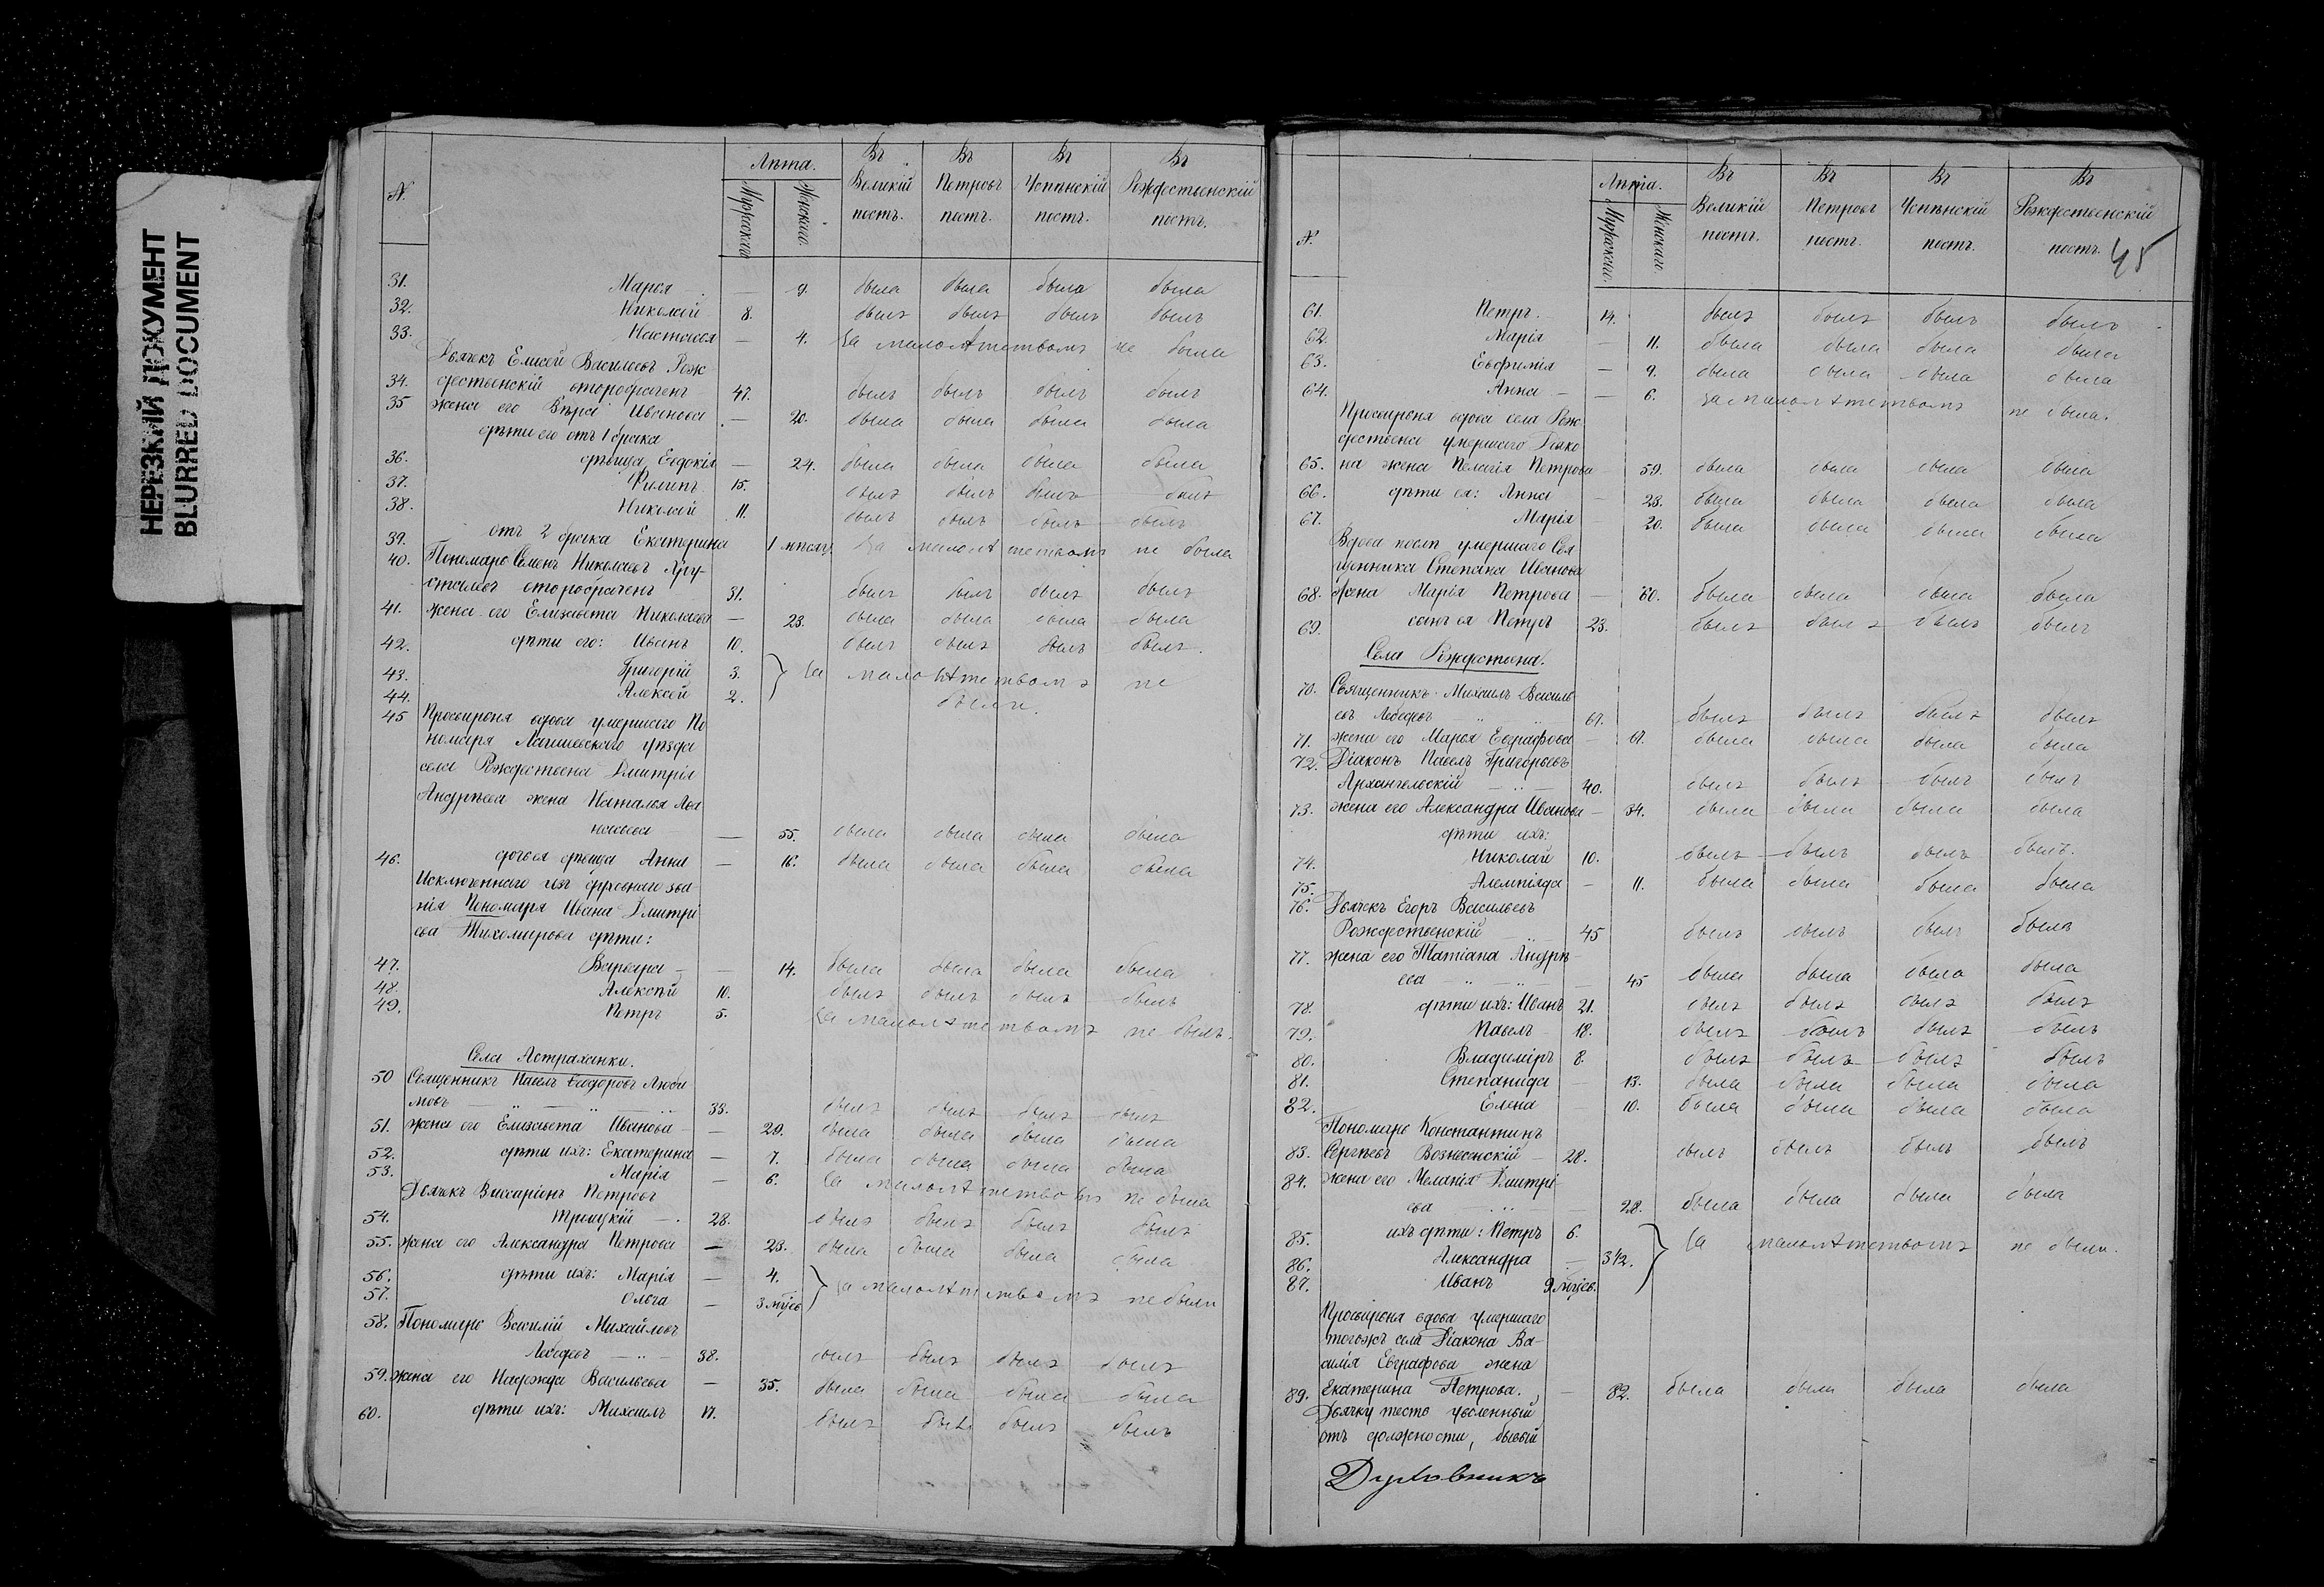 НЕРЕЗКИЙ ДОКУМЕНТ
BLURRED DOCUMENT
№ Лѣта. Мужскаго Женскаго. Въ Великій постъ. Въ Петровъ постъ. Въ Успѣнскій постъ. Въ Рождественскій постъ.
31. Марья — 9. была была была была
32. Николай 8. былъ былъ былъ былъ
33. Настасья — 4. За малолѣтствомъ не была
Дьячекъ Елисей Васильевъ Рож
34. дественскій второбраченъ 47. былъ былъ былъ былъ
35 жена его Вѣра Иванова — 20. была была была была
дѣти его отъ 1 брака
36. дѣвица Евдокія — 24. была была была была
37. Филипъ 15. былъ былъ былъ былъ
38. Николай 11. былъ былъ былъ былъ
39. отъ 2 брака Екатерина 1 мѣсяц За малолѣтствомъ не была
40. Пономарь Семенъ Николаевъ Хру-
сталевъ второбраченъ 31. былъ былъ былъ былъ
41. жена его Елизавета Николаева — 23. была была была была
42. дѣти его: Иванъ 10. былъ былъ былъ былъ.
43. Григорій 3. } За малолѣтствомъ не
44. Алексѣй 2. были.
45 Просвирня вдова умершаго По
номаря Лаишевскаго уѣзда
села Рождествена Дмитрія
Андрѣева жена Наталья Афа
насьева — 55. была была была была
46. дочь ея дѣвица Анна — 16. была была была была
Исключеннаго изъ духовнаго зва
нія Пономаря Ивана Дмитрі
ева Тихомирова дѣти:
47. Варвара — — 14. была была была была
48. Алексѣй 10. былъ былъ былъ былъ
49. Петръ 5. За малолѣтствомъ не былъ.
Села Астраханки.
50 Священникъ Павелъ Ѳеодоровъ Люби
мовъ — " — " — 33. былъ былъ былъ былъ
51. жена его Елизавета Иванова — — 29. была была была была
52. дѣти ихъ: Екатерина — 7. была была была была
53. Марія — 6. За малолѣтствомъ не была
Дьячекъ Виссаріонъ Петровъ
54. Троицкій — 28. былъ былъ былъ былъ
55. жена его Александра Петрова — 23. была была была была
56. дѣти ихъ: Марія — 4. } За малолѣтствомъ не были
57. Ольга — 3 мѣсяц
58. Пономарь Василій Михайловъ
Лебедевъ — " — 38. былъ былъ былъ былъ
59. жена его Надежда Васильева — 35. была была была была
60. дѣти ихъ: Михаилъ 17. былъ былъ былъ былъ
№ Лѣта. Мужскаго. Женскаго. Въ Великій постъ. Въ Петровъ постъ. Въ Успѣнскій постъ. Въ Рождественскій постъ. 45
61. Петръ. 14. былъ былъ былъ былъ
62. Марія — 11. была была была была
63. Евфимія — 9. была была была была
64. Анна — — 6. За малолѣтствомъ не была.
Просвирня вдова села Рож
дествена умершаго Дьяко
65. на жена Пелагія Петрова 59. была была была была
66. дѣти ея: Анна — 23. была была была была
67. Марія 20. была была была была
Вдова послѣ умершаго Свя
щенника Степана Иванова
68. жена Марія Петрова — 60. была была была была
69. сынъ ея Петръ 23. былъ былъ былъ былъ
Села Рождествена.
70. Священникъ Михаилъ Василь
евъ Лебедевъ " " 61. былъ былъ былъ былъ
71. жена его Марья Евграфова — 61. была была была была
72. Діаконъ Павелъ Григорьевъ
Архангельскій — " — 40. былъ былъ былъ былъ
73. жена его Александра Иванова — 34. была была была была
дѣти ихъ:
74. Николай 10. былъ былъ былъ былъ.
75. Алемпіяда — 11. была была была была
76. Дьячекъ Егоръ Васильевъ
Рождественскій — — 45 былъ былъ былъ былъ
77. жена его Татіана Андрѣ-
ева — " — " — — 45 была была была была
78. дѣти ихъ: Иванъ 21. былъ былъ былъ былъ
79. Павелъ 18. былъ былъ былъ былъ
80. Владиміръ 8. былъ былъ былъ былъ
81. Степанида — 13. была была была была
82. Елена — 10. была была была была
Пономарь Константинъ
83. Сергѣевъ Вознесенскій — 28. былъ былъ былъ былъ
84. жена его Меланія Дмитрі
ева — " — — 28. была была была была
85. ихъ дѣти: Петръ 6. } За малолѣтствомъ не были.
86. Александра — 3 1/2.
87. Иванъ 9 мѣсяц.
Просвирня вдова умершаго
тогожъ села Діакона Ва-
силія Евграфова жена
89. Екатерина Петрова. — 82. была была была была
Дьячку место уволенный
отъ должности, бывый
Духовникъ